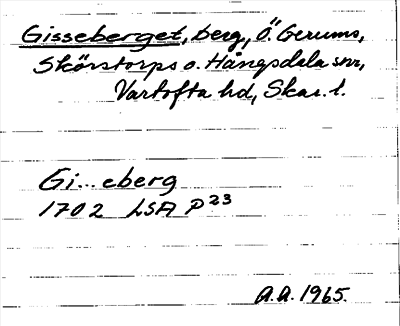 Gisseberget, berg, Ö. Gerums,
Skörstorps o. Hångsdala snr,
Vartofta hd, Skar. l.
Gi...eberg
1702 LSA P23
A.A. 1965.